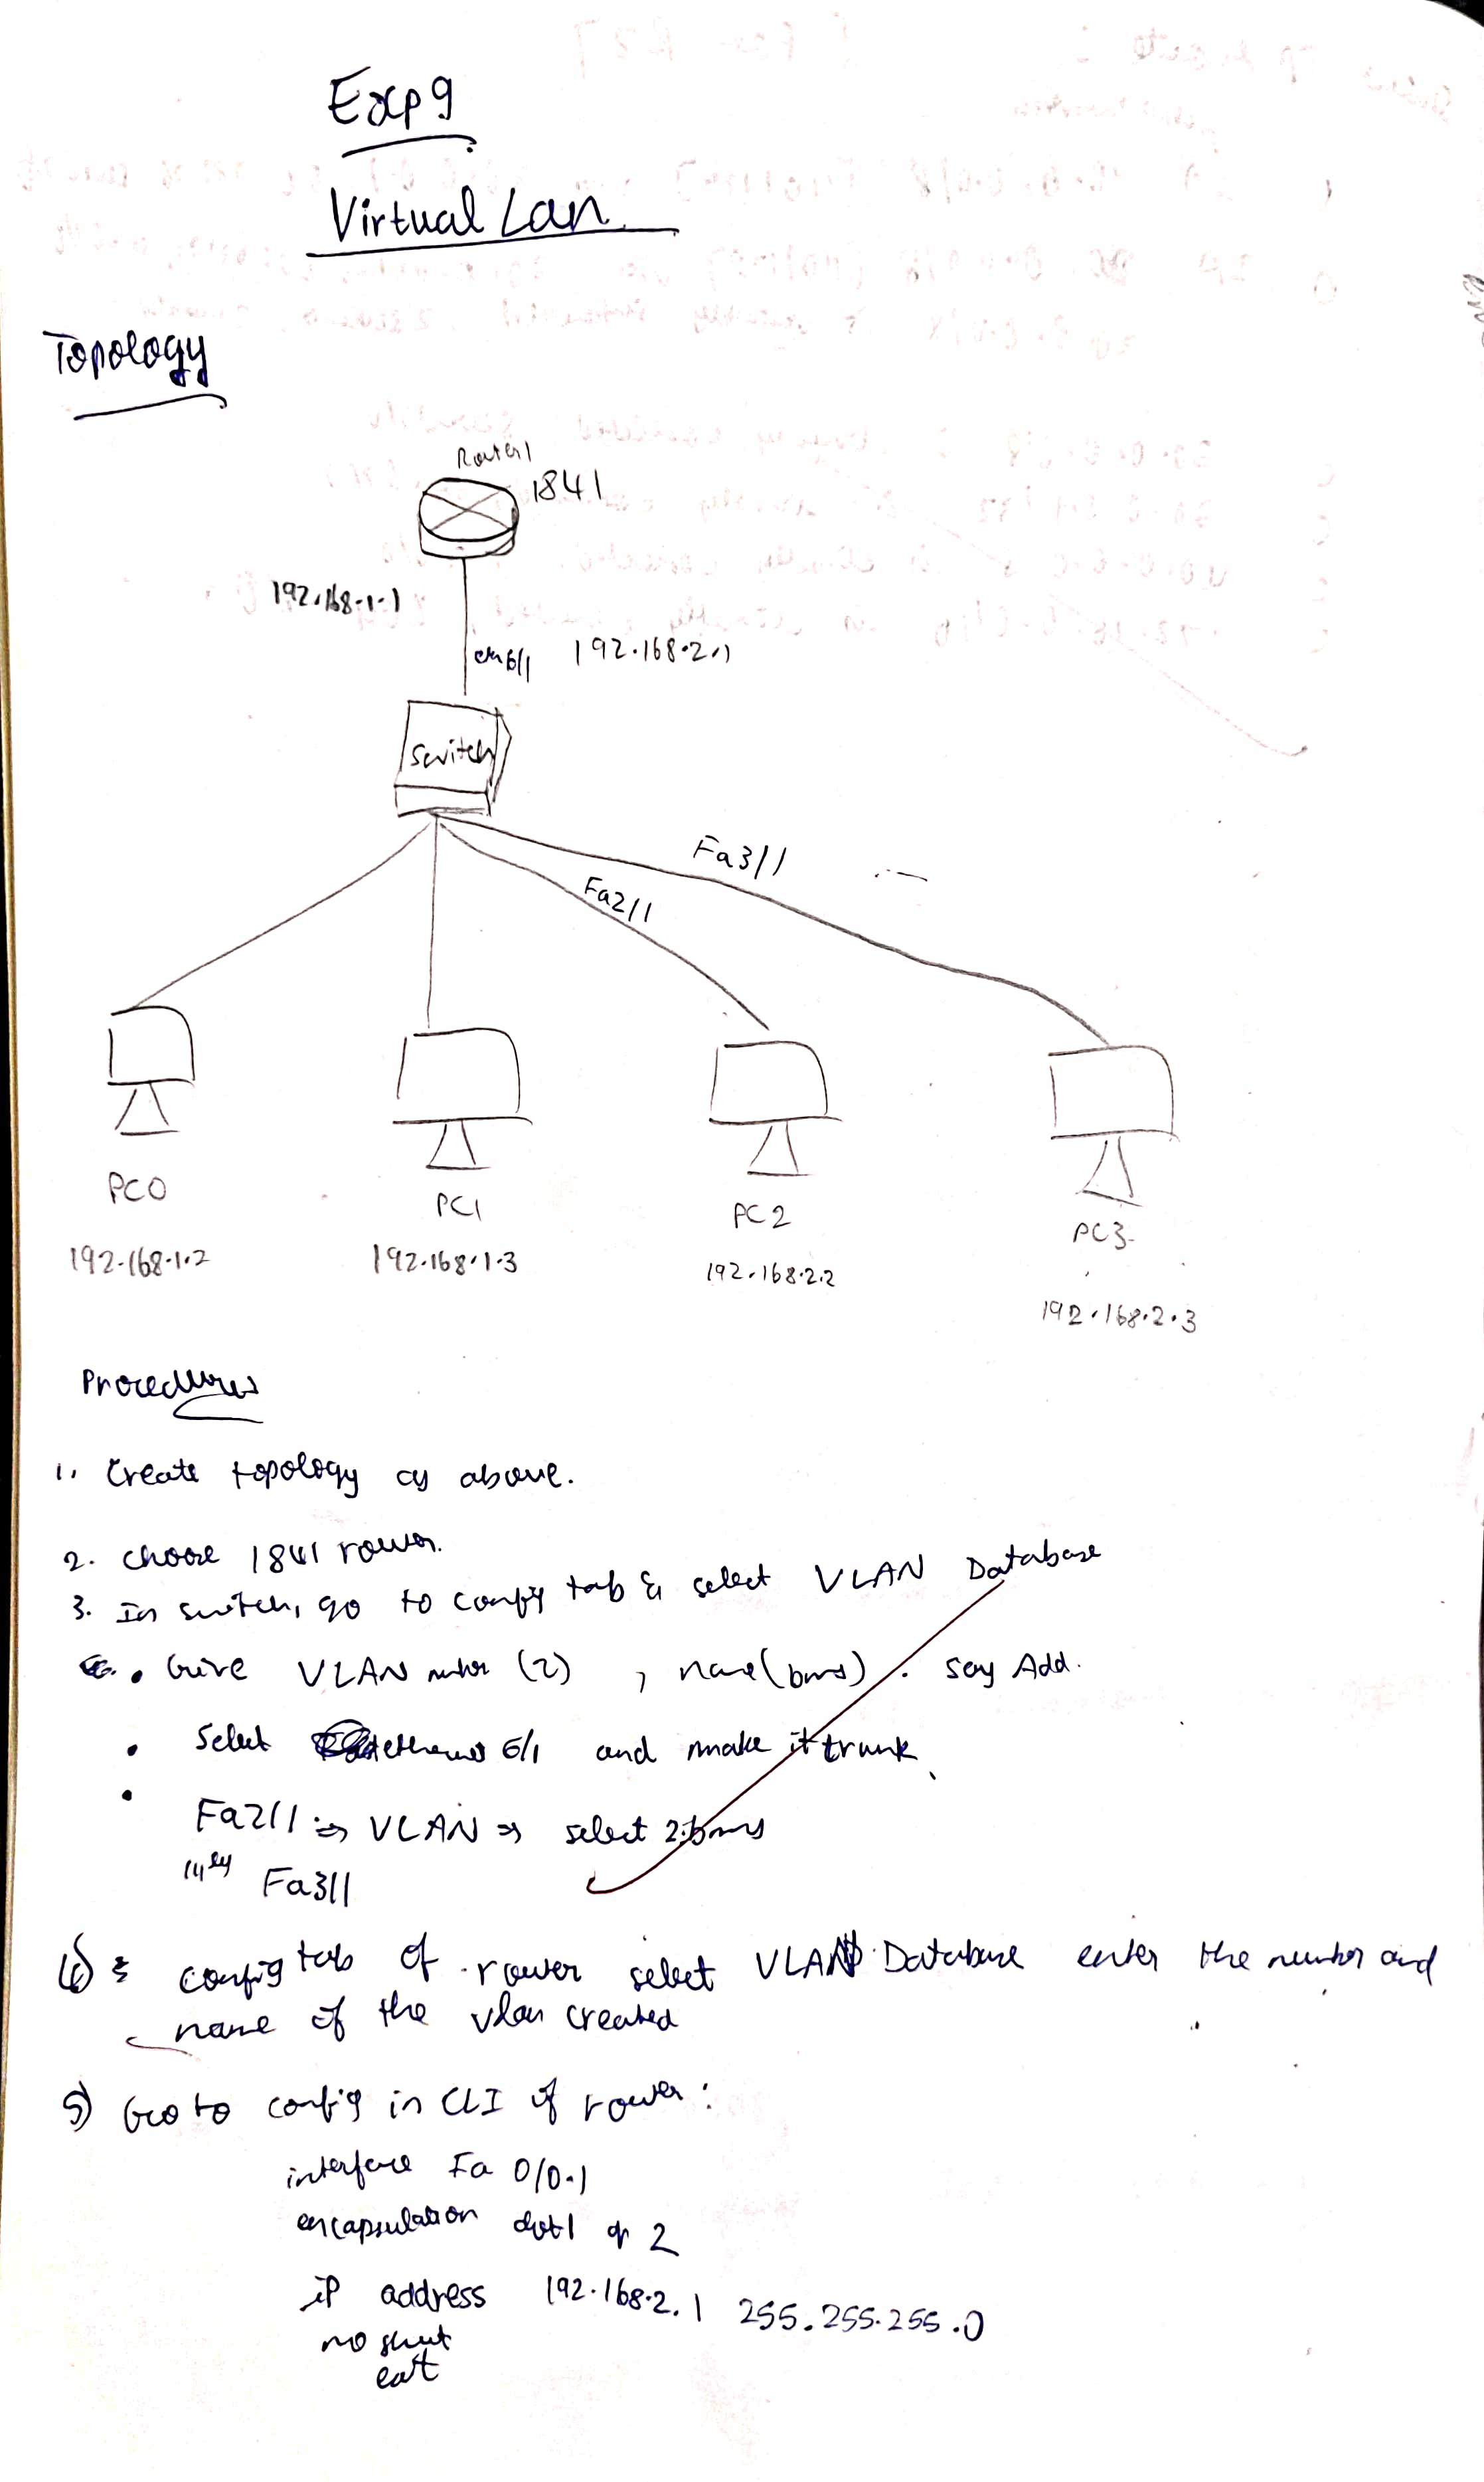 Exp 9
Virtual Lan
Topology
Router1
1841
192.168.1.1
192.168.2.1
Switch
Fa3/1
Fa2/1
PC0
PC1
PC2
PC3
192.168.1.2
192.168.1.3
192.168.2.2
192.168.2.3
Procedures
1. Create topology as above.
2. choose 1841 router.
3. In switch, go to config tab & select VLAN Database
• Give VLAN number (2) , name( ) . say Add.
• Select 6/1 and make it trunk
• Fa2/1 ⇒ VLAN ⇒ select 2:
111ly Fa3/1
4) config tab of router select VLAN Database enter the number and
name of the vlan created
5) Go to config in CLI of router:
interface Fa 0/0.1
encapsulation dot1 q 2
ip address 192.168.2.1 255.255.255.0
no shut
exit